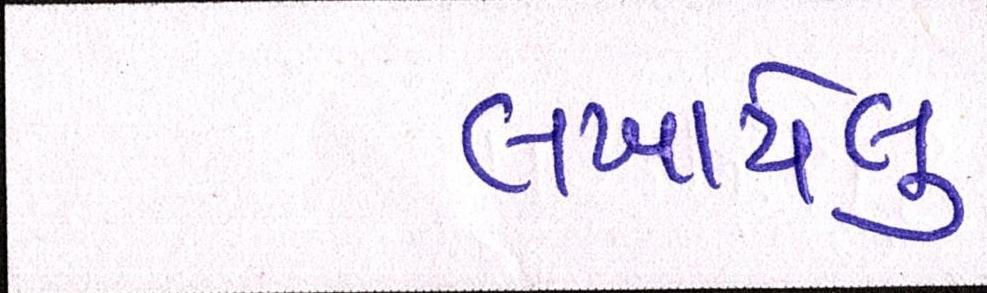 લખાયેલુ